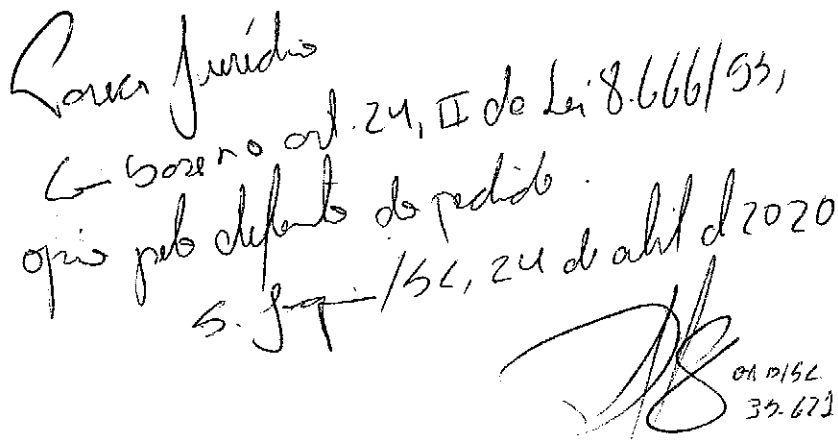 Parecer Jurídico
Com base no art. 24, II da Lei 8.666/93,
opino pelo deferimento do pedido.
S. Joaquim/SC, 24 de abril de 2020
OAB/SC